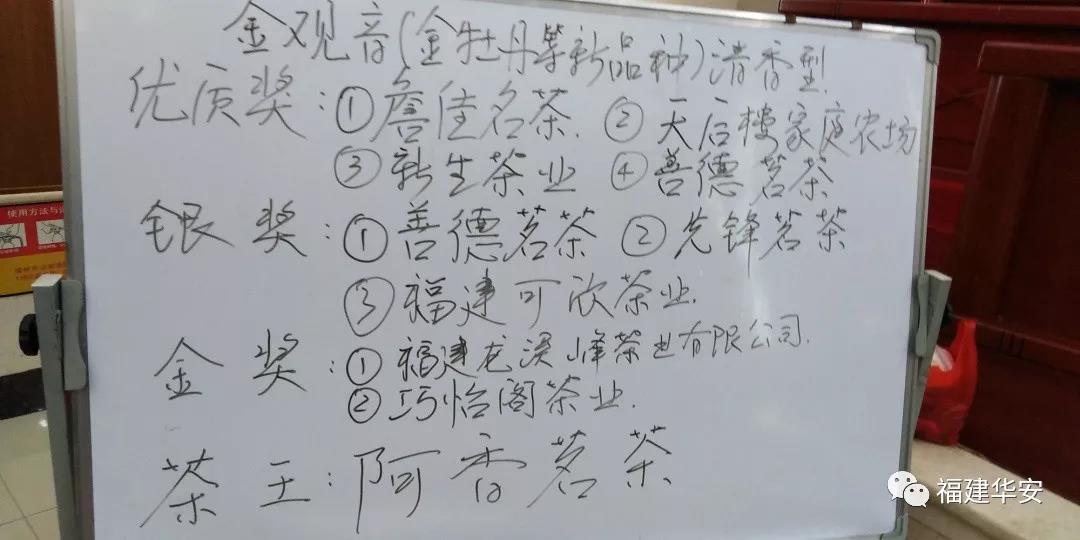 金观音(金牡丹等新品种)清香型.
优质奖:①詹佳名茶.②天后楼家庭农坊
③新生茶业 ④善德茗茶
银奖:①善德茗茶 ②先锋茗茶
③福建可欣茶业.
金奖:①福建龙溪峰茶业有限公司.
②巧怡阁茶业.
茶王:阿香茗茶
使用方法与
福建华安